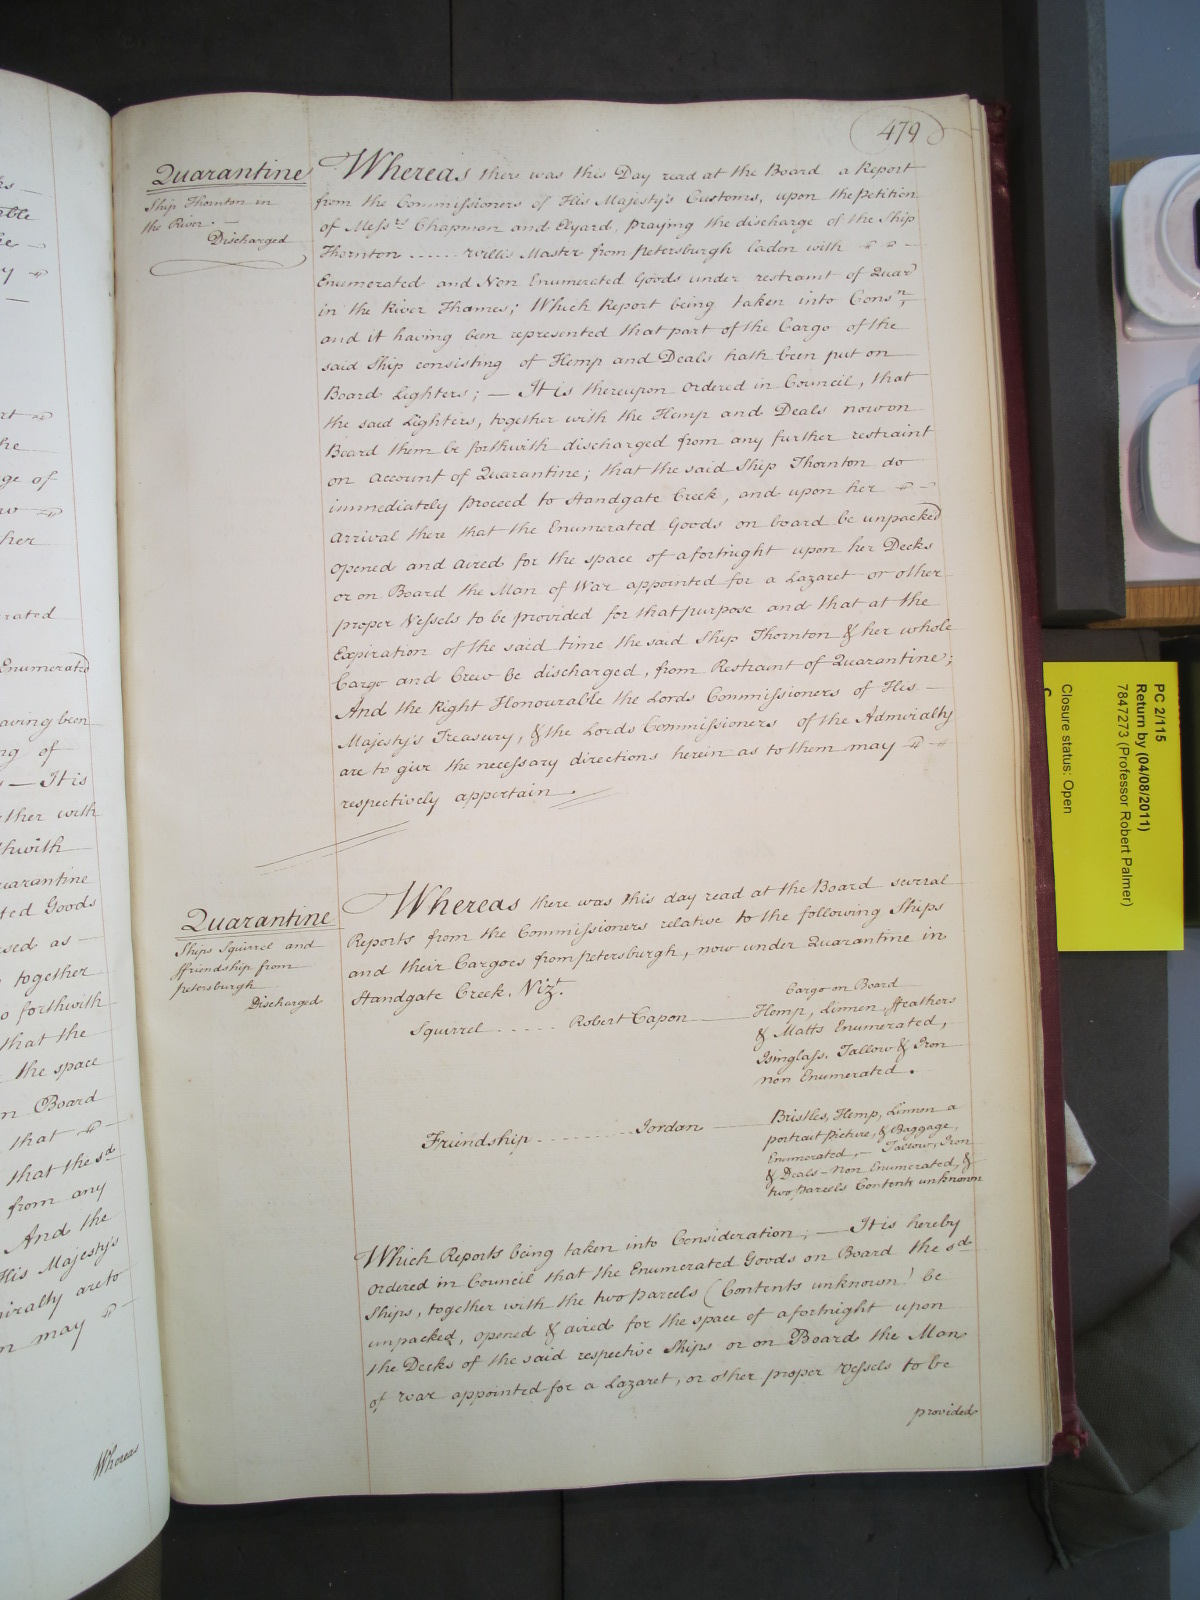 479
Quarantine
Ship Thornton in
the River. —
Discharged
Whereas there was this Day read at the Board a Report
from the Commissioners of His Majesty's Customs, upon the petition
of Mess.rs Chapman and Elyard, praying the discharge of the Ship
Thornton ...... Willis Master from petersburgh Laden with
Enumerated and Non Enumerated Goods under restraint of Quar
in the River Thames; Which Report being taken into Cons.n,
and it having been represented that part of the Cargo of the
said Ship consisting of Hemp and Deals hath been put on
Board Lighters; — It is thereupon ordered in Council, that
the said Lighters, together with the Hemp and Deals now on
Board them be forthwith discharged from any further restraint
on Account of Quarantine; that the said Ship Thornton do
immediately proceed to Standgate Creek, and upon her
Arrival there that the Enumerated Goods on board be unpacked
opened and aired for the space of a fortnight upon her Decks
or on Board the Man of War appointed for a Lazaret or other
proper Vessels to be provided for that purpose and that at the
Expiration of the said time the said Ship Thornton & her whole
Cargo and Crew be discharged, from Restraint of Quarantine;
And the Right Honourable the Lords Commissioners of His —
Majesty's Treasury, & the Lords Commissioners of the Admiralty
are to give the necessary directions herein as to them may
respectively appertain.
Quarantine
Ships Squirrel and
ffriendship from
petersburgh
Discharged
Whereas there was this day read at the Board several
Reports from the Commissioners relative to the following Ships
and their Cargoes from petersburgh, now under Quarantine in
Standgate Creek. Viz.t
Cargo on Board
Squirrel ..... Robert Capon — Hemp, Linnen, ffeathers
& Matts Enumerated,
Isinglass, Tallow & Iron
non Enumerated.
Friendship ........ Jordan — Bristles, Hemp, Linnen a
portrait Picture, & Baggage,
Enumerated, — Tallow, Iron
& Deals — Non Enumerated, &
two parcels Contents unknown
Which Reports being taken into Consideration, — It is hereby
ordered in Council that the Enumerated Goods on Board the s.d
Ships, together with the two parcels (Contents unknown) be
unpacked, opened & aired for the space of a fortnight upon
the Decks of the said respective Ships or on Board the Man
of War appointed for a Lazaret, or other proper Vessels to be
provided
rated
Enumerated
aving been
ng of
— It is
ther with
thwith
uarantine
ted Goods
sed as —
together
o forthwith
that the
the space
n Board
that
that the s.d
from any
And the
His Majesty's
miralty are to
may
Whereas
PC 2/115
Return by (04/08/2011)
7847273 (Professor Robert Palmer)
Closure status: Open